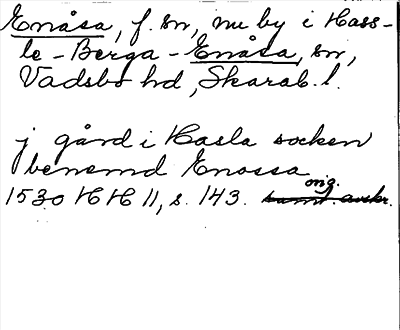 Enåsa, f. sn, nu by i Hass-
le-Berga-Enåsa, sn,
Vadsbo hd, Skarab. l.
j gård i Hasla socken
benemd Enossa
orig.
1530 HH 11, s. 143. samt. avskr.